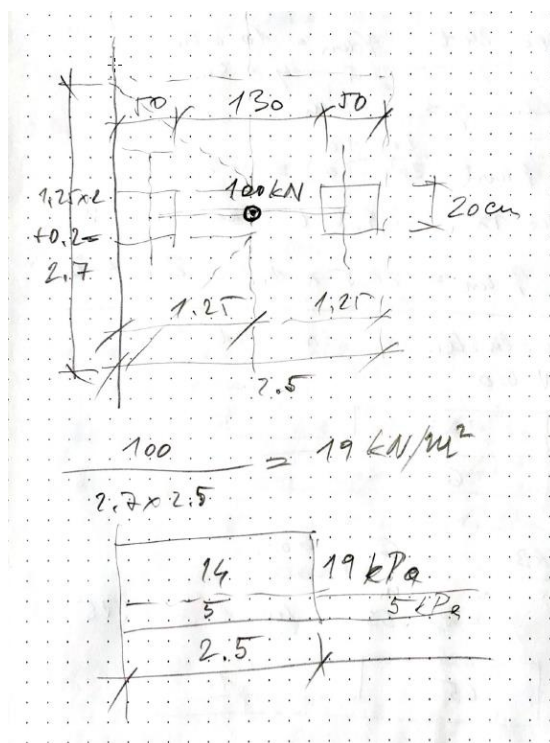 50 130 50
100 kN
1,25x2
+0.2=
2.7
20 cm
1.25 1,25
2.5
100
2.7 x 2.5
= 19 kN/m²
14 19 kPa
5 5 kPa
2.5